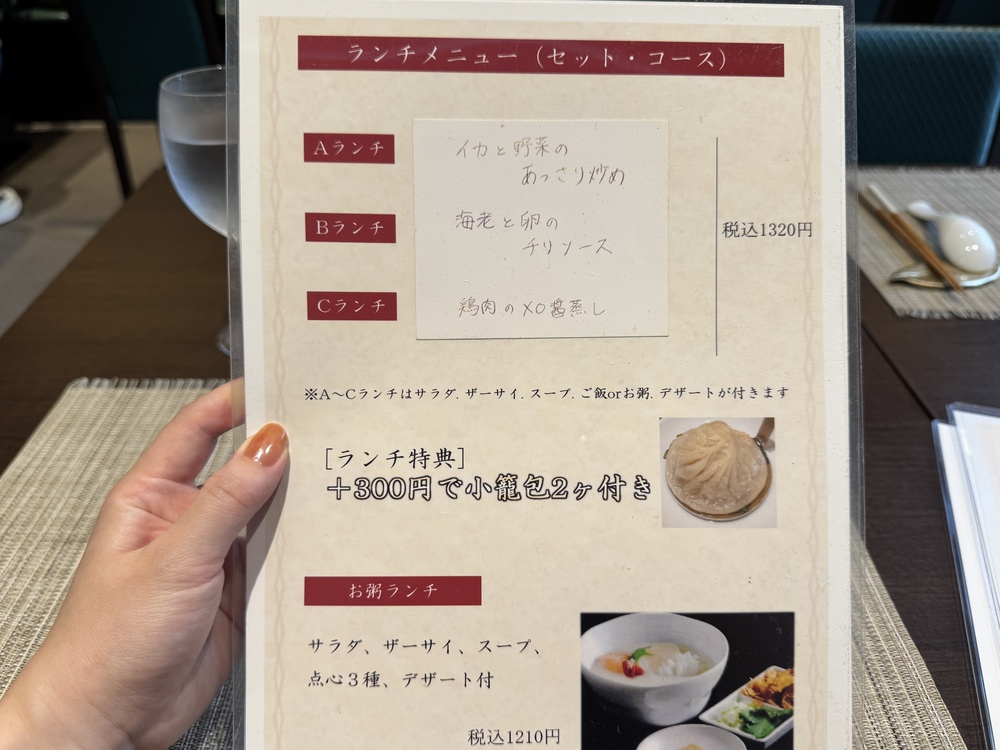 ランチメニュー（セット・コース）
Aランチ
イカと野菜の
あっさり炒め
Bランチ
海老と卵の
チリソース
税込1320円
Cランチ
鶏肉のXO醤蒸し
※A〜Cランチはサラダ. ザーサイ. スープ. ご飯orお粥. デザートが付きます
［ランチ特典］
＋300円で小籠包2ヶ付き
お粥ランチ
サラダ、ザーサイ、スープ、
点心３種、デザート付
税込1210円